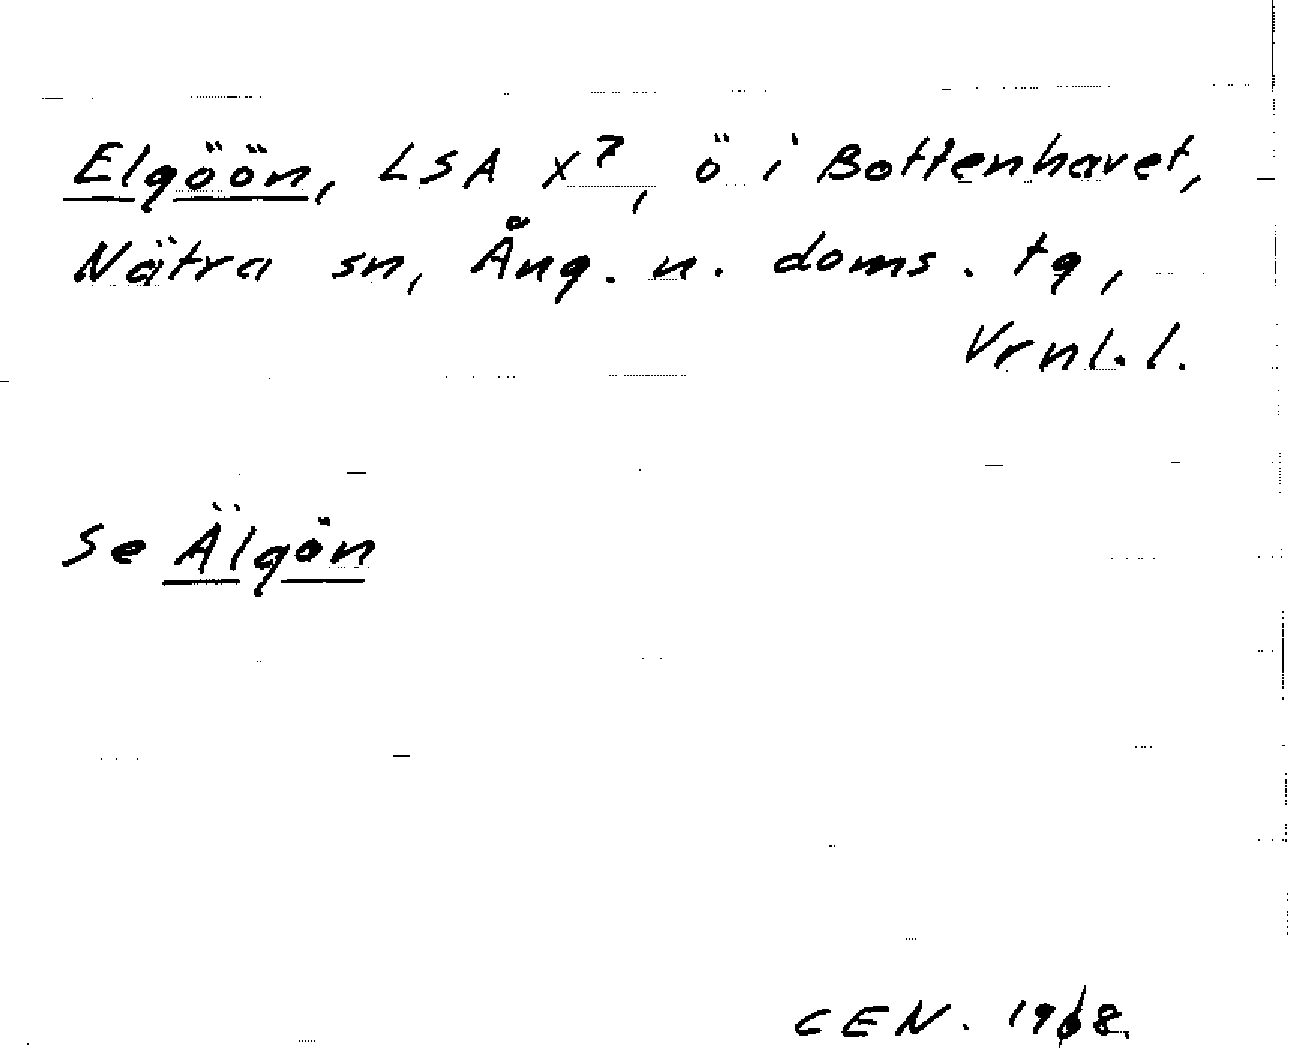 Elgöön, LSA X⁷, ö i Bottenhavet,
Nätra sn, Ång. n. doms. tg,
Vrnl. l.
Se Älgön
CEN. 1968.